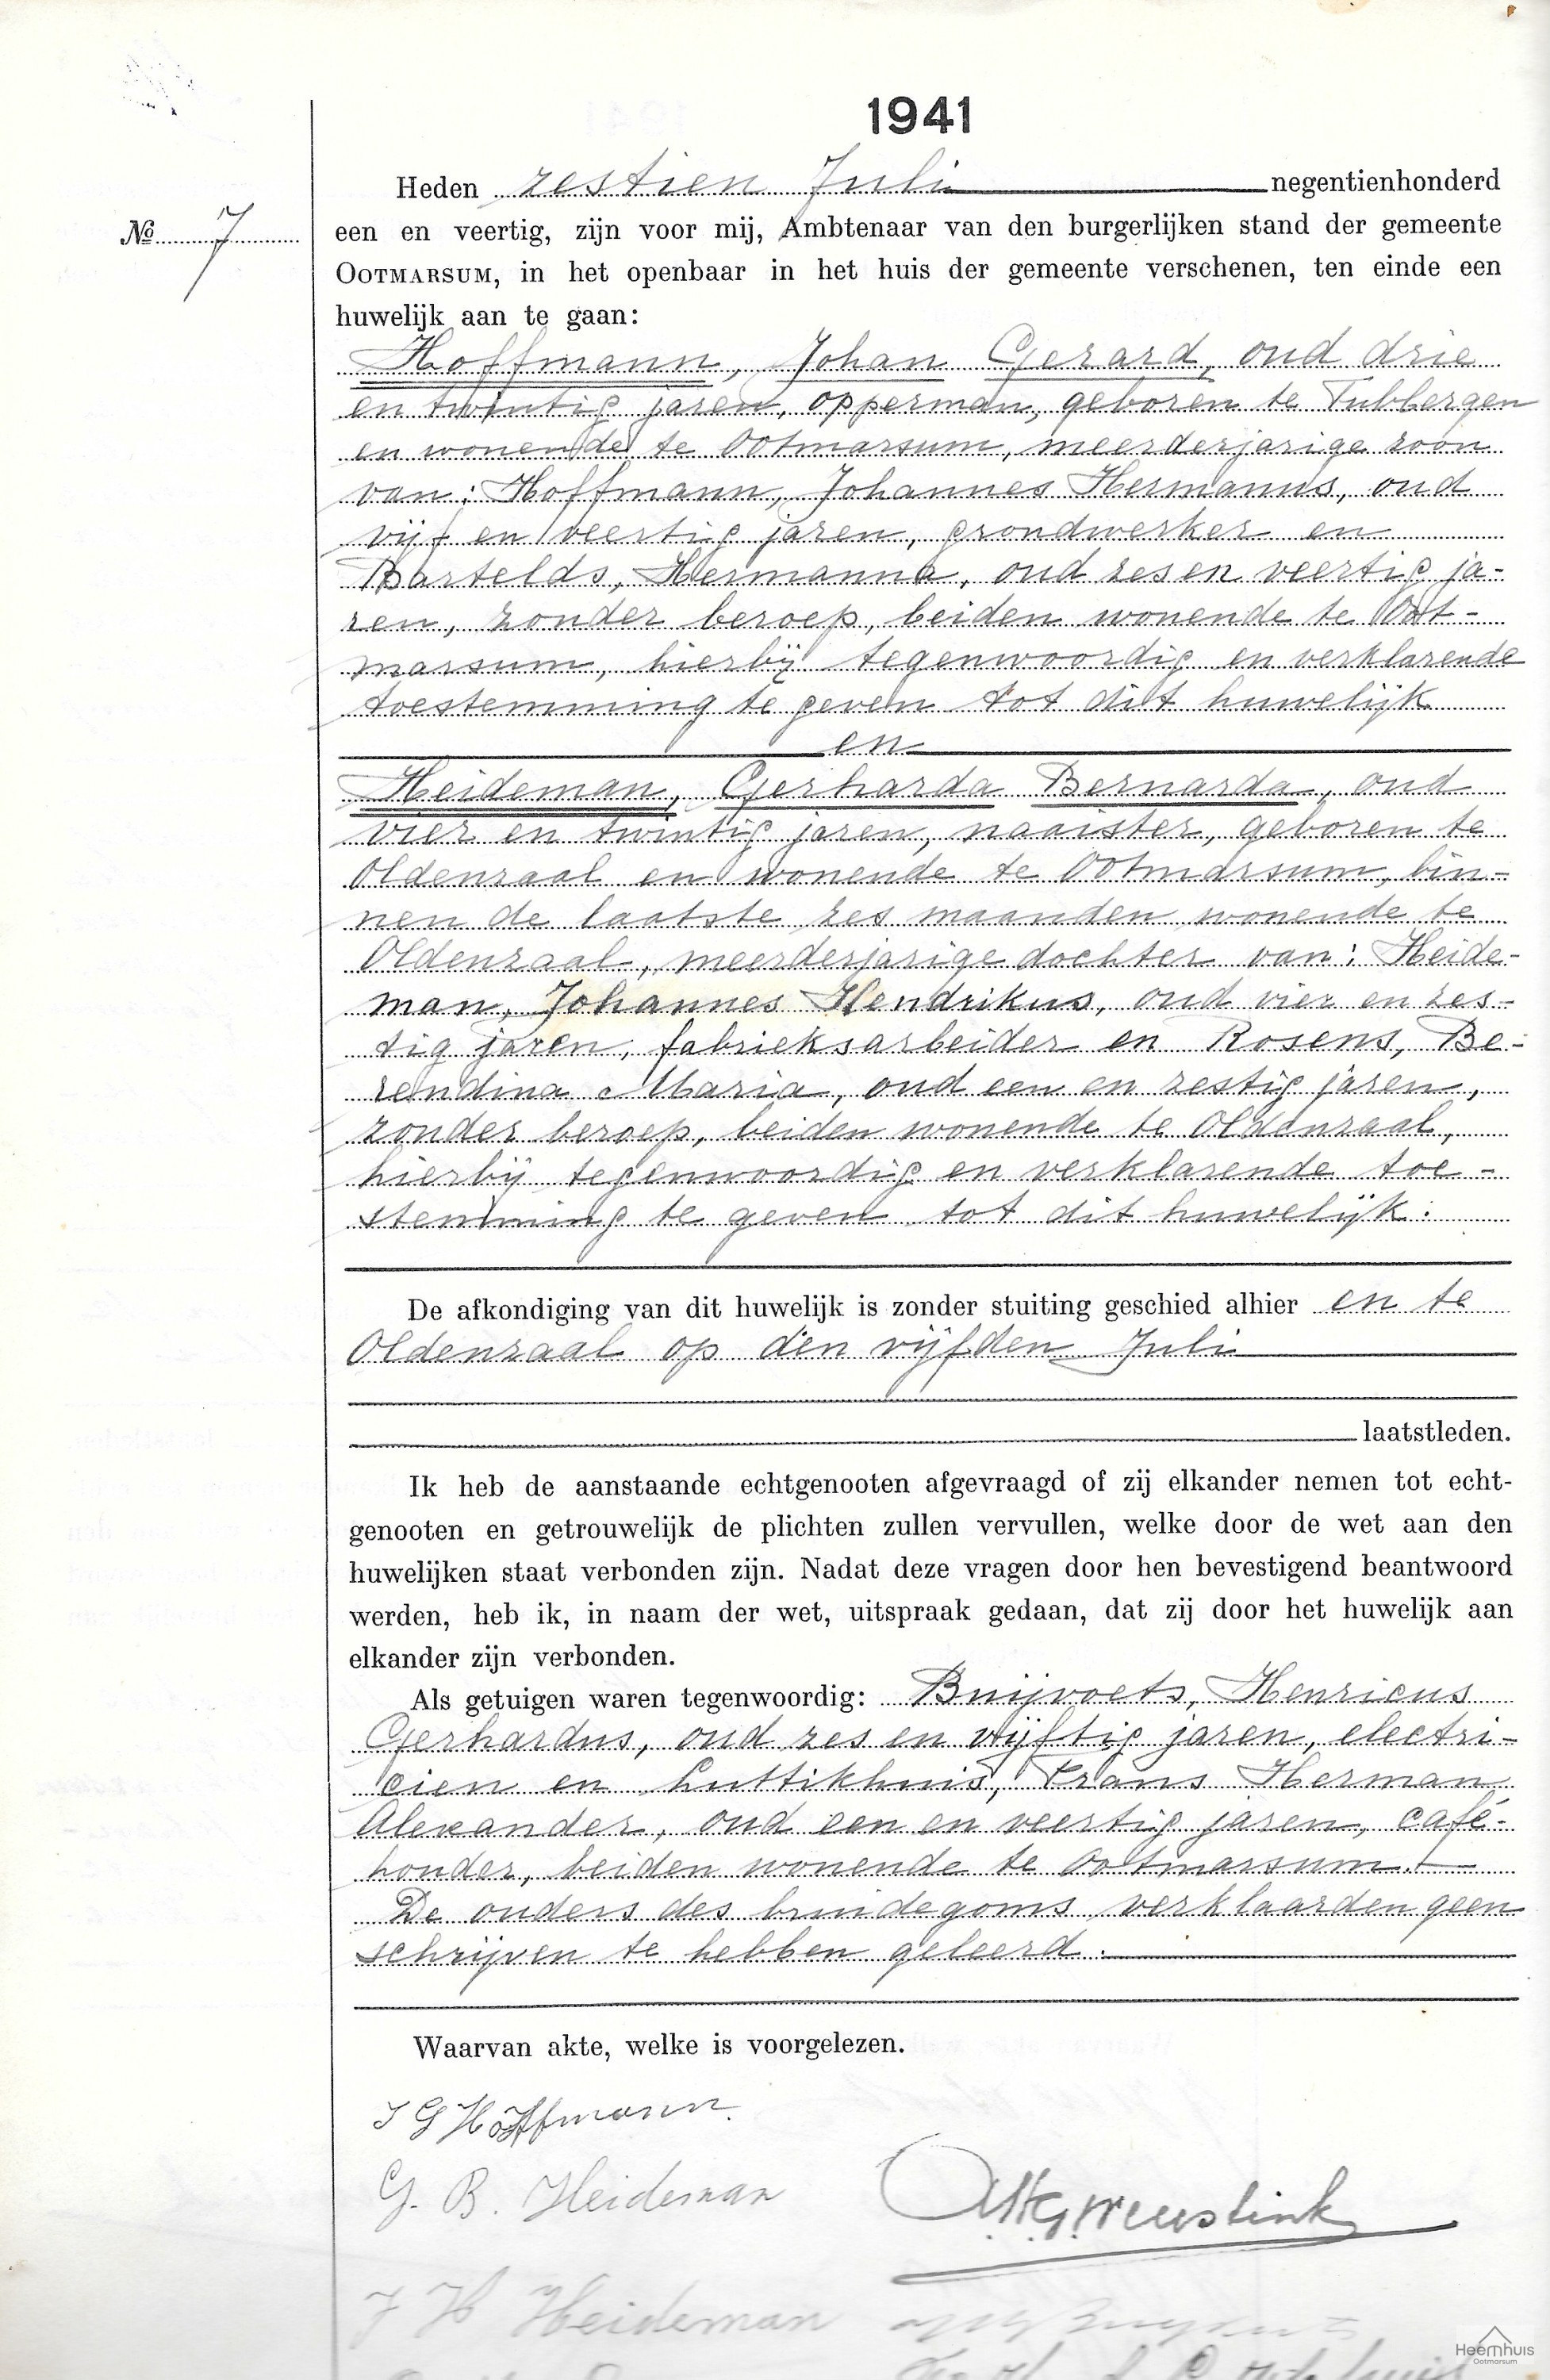 1941
Heden zestien Juli negentienhonderd
No 7
een en veertig, zijn voor mij, Ambtenaar van den burgerlijken stand der gemeente
OOTMARSUM, in het openbaar in het huis der gemeente verschenen, ten einde een
huwelijk aan te gaan:
Hoffmann, Johan Gerard, oud drie
en twintig jaren, opperman, geboren te Tubbergen
en wonende te Ootmarsum, meerderjarige zoon
van: Hoffmann, Johannes Hermannus, oud
vijf en veertig jaren, grondwerker en
Bartelds, Hermanna, oud zes en veertig ja-
ren, zonder beroep, beiden wonende te Oot-
marsum, hierbij tegenwoordig en verklarende
toestemming te geven tot dit huwelijk
en
Heideman, Gerharda Bernarda, oud
vier en twintig jaren, naaister, geboren te
Oldenzaal en wonende te Ootmarsum, bin-
nen de laatste zes maanden wonende te
Oldenzaal, meerderjarige dochter van: Heide-
man, Johannes Hendrikus, oud vier en zes-
tig jaren, fabrieksarbeider en Rosens, Be-
rendina Maria, oud een en zestig jaren,
zonder beroep, beiden wonende te Oldenzaal,
hierbij tegenwoordig en verklarende toe-
stemming te geven tot dit huwelijk.
De afkondiging van dit huwelijk is zonder stuiting geschied alhier en te
Oldenzaal op den vijfden Juli
laatstleden.
Ik heb de aanstaande echtgenooten afgevraagd of zij elkander nemen tot echt-
genooten en getrouwelijk de plichten zullen vervullen, welke door de wet aan den
huwelijken staat verbonden zijn. Nadat deze vragen door hen bevestigend beantwoord
werden, heb ik, in naam der wet, uitspraak gedaan, dat zij door het huwelijk aan
elkander zijn verbonden.
Als getuigen waren tegenwoordig: Buijvoets, Henricus
Gerhardus, oud zes en vijftig jaren, electri-
cien en Luttikhuis, Frans Herman
Alexander, oud een en veertig jaren, café-
houder, beiden wonende te Ootmarsum.
De ouders des bruidegoms verklaarden geen
schrijven te hebben geleerd.
Waarvan akte, welke is voorgelezen.
J G Hoffmann.
G. B. Heideman
J H Heideman
Heemhuis
Ootmarsum